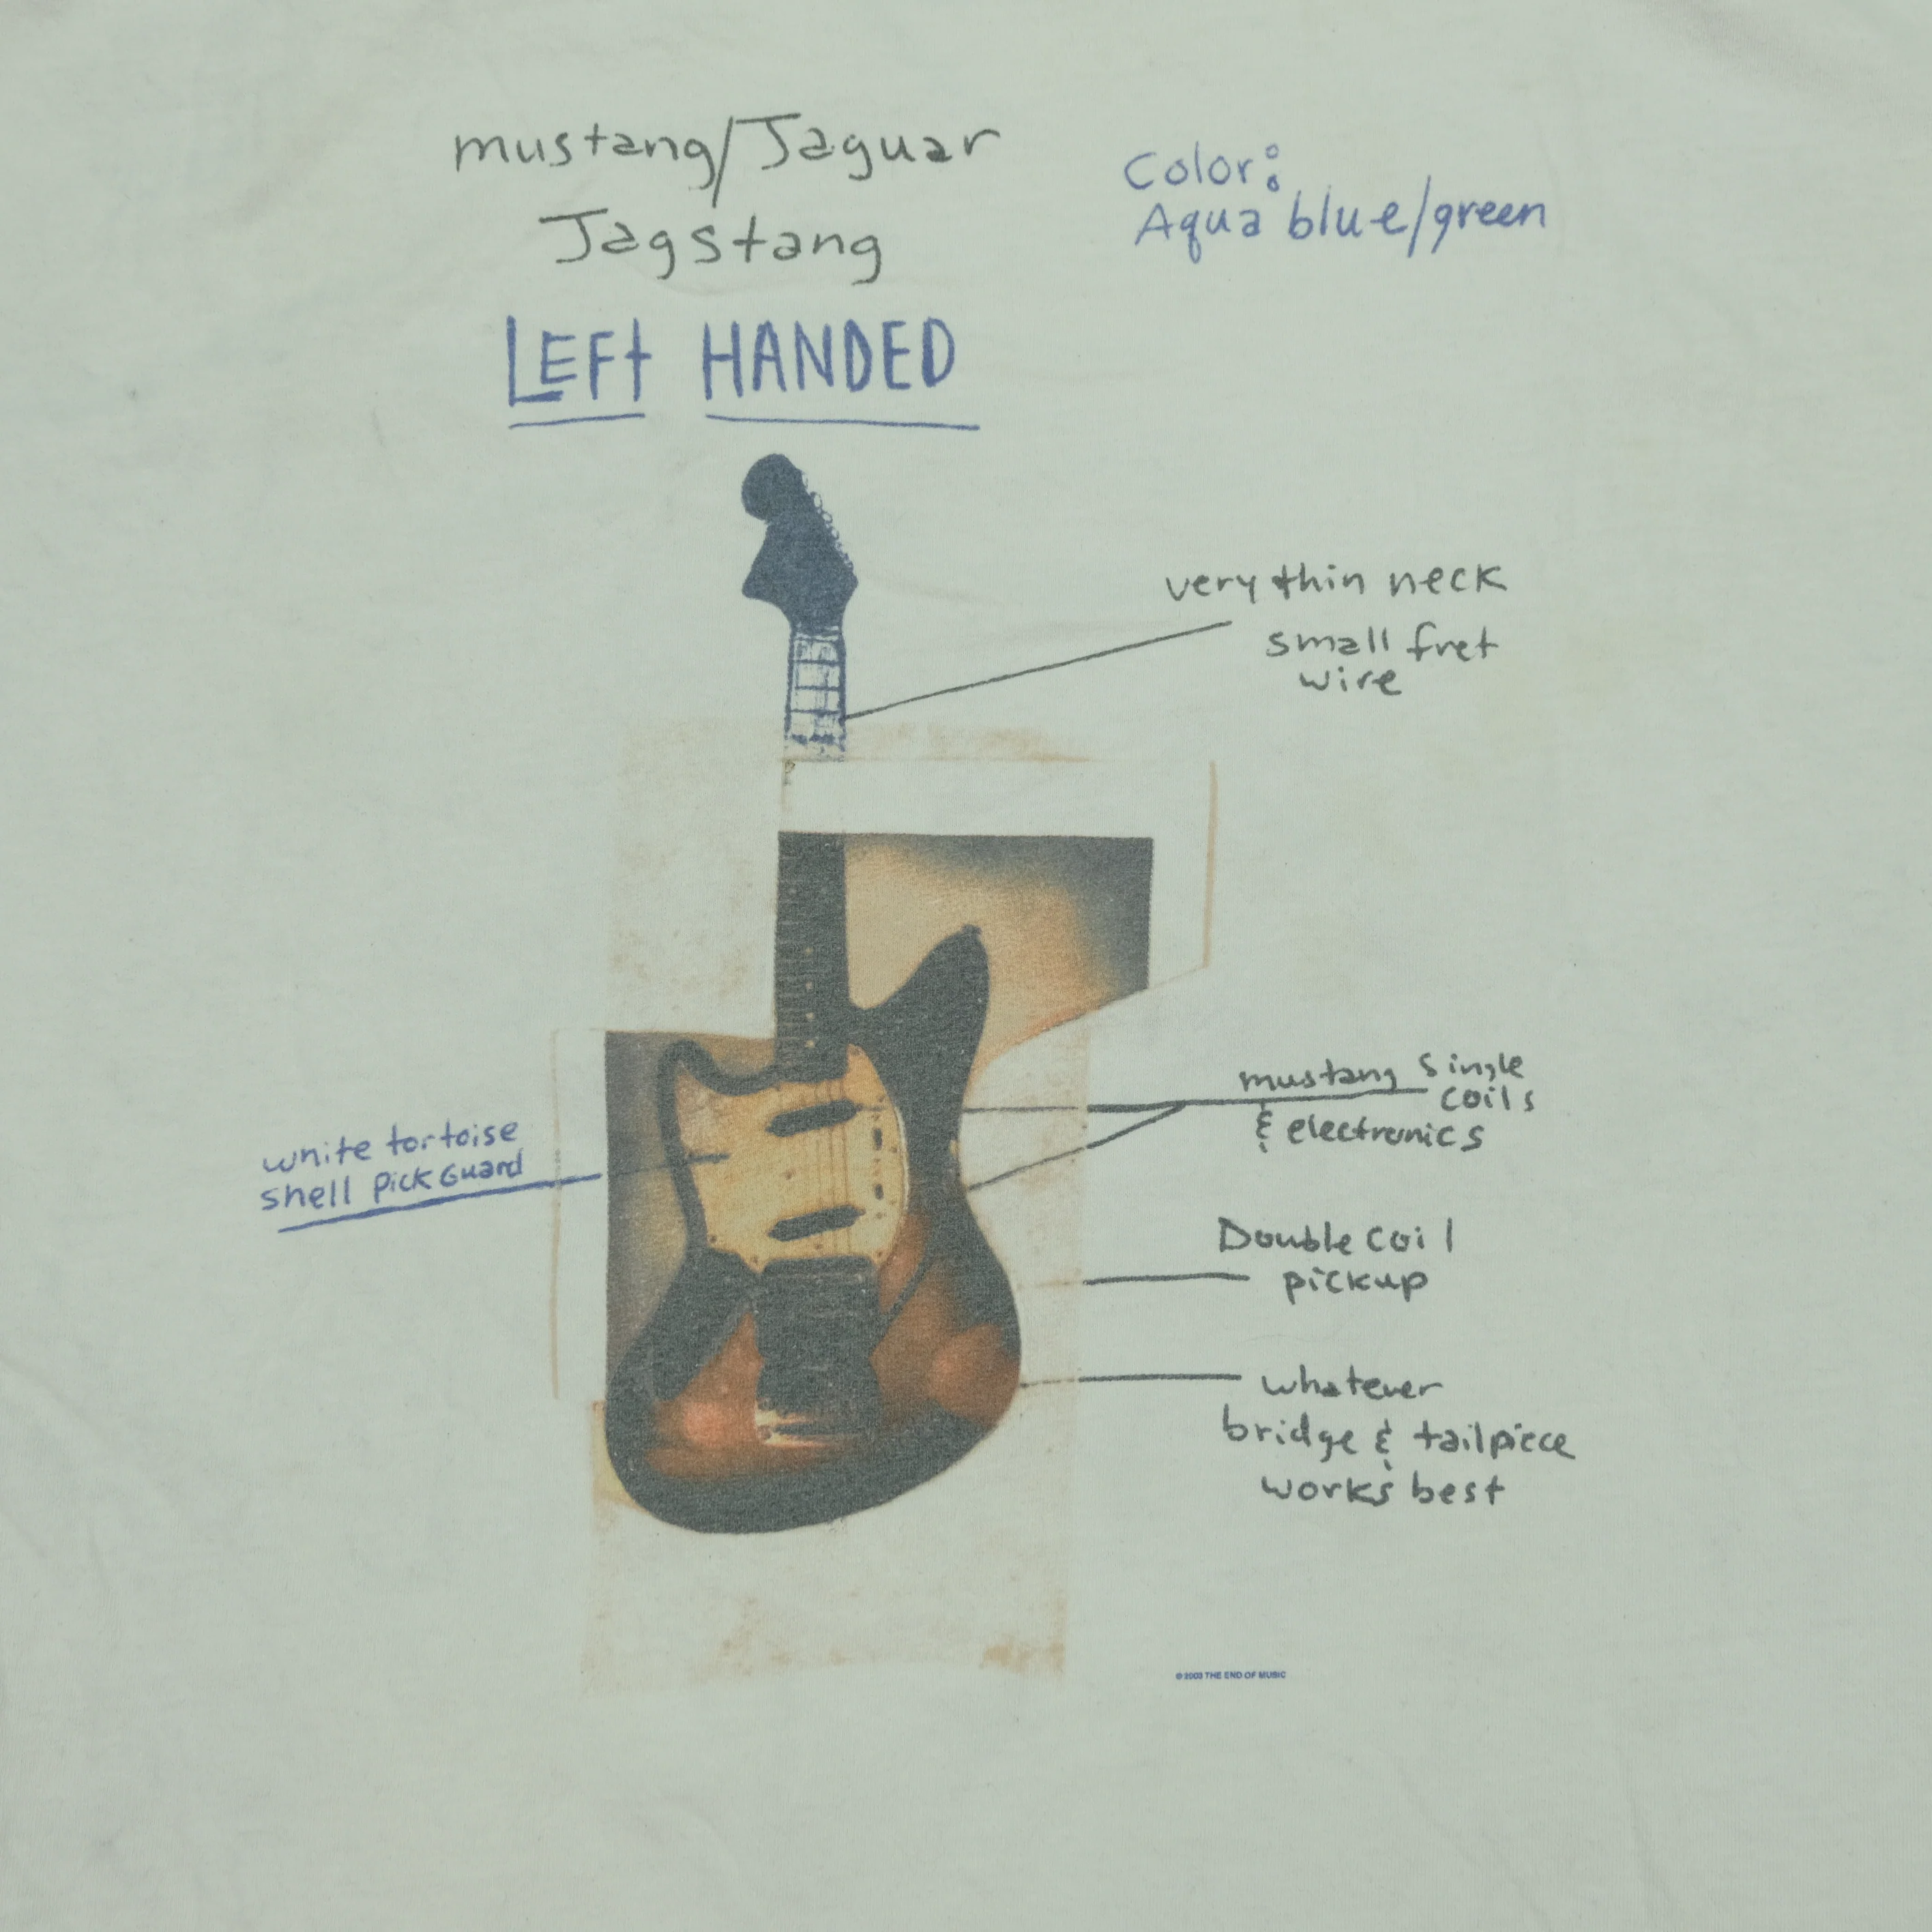 mustang/Jaguar
Jagstang
LEFt HANDED
Color:
Aqua blue/green
very thin neck
small fret
wire
mustang single
coils
& electronics
white tortoise
shell pickGuard
Double coil
pickup
whatever
bridge & tailpiece
works best
© 2003 THE END OF MUSIC